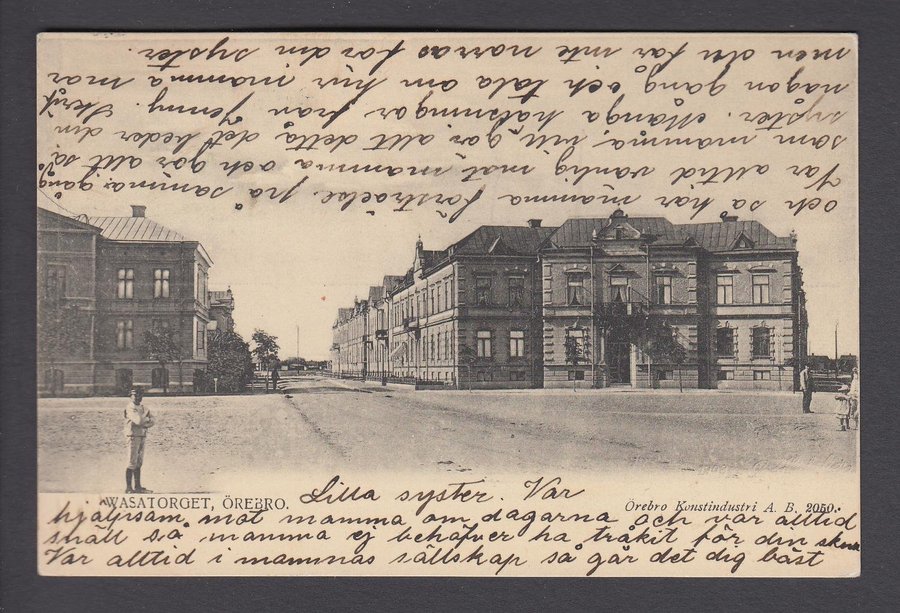 WASATORGET, ÖREBRO.
Örebro Konstindustri A. B. 2050.
Lilla syster. Var
hjälpsam mot mamma om dagarna och var alltid
snäll så mamma ej behöfver ha tråkit för din skull
Var alltid i mammas sällskap så går det dig bäst
och så här mamma förståelse på samma gång
Var alltid vänlig mot mamma och gör allt så
som mamma vill gör allt detta det beder din
syster. Många hälsningar från Jenny. Skrif
någon gång och tala om hur mamma mår
men du får inte narras för din syster.